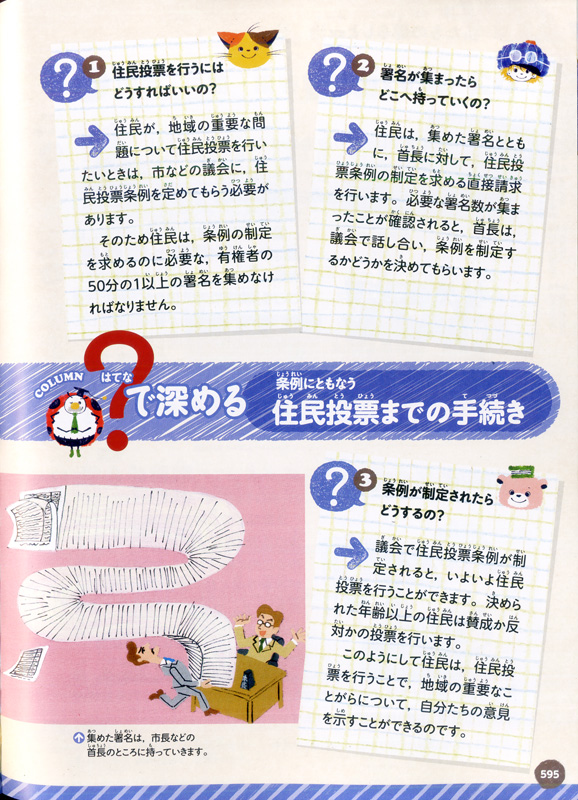 1 住民投票を行うには
どうすればいいの？
住民が，地域の重要な問
題について住民投票を行い
たいときは，市などの議会に，住
民投票条例を定めてもらう必要が
あります。
そのため住民は，条例の制定
を求めるのに必要な，有権者の
50分の1以上の署名を集めなけ
ればなりません。
2 署名が集まったら
どこへ持っていくの？
住民は，集めた署名ととも
に，首長に対して，住民投
票条例の制定を求める直接請求
を行います。必要な署名数が集ま
ったことが確認されると，首長は，
議会で話し合い，条例を制定す
るかどうかを決めてもらいます。
COLUMN
はてな
?で深める
条例にともなう
住民投票までの手続き
3 条例が制定されたら
どうするの？
議会で住民投票条例が制
定されると，いよいよ住民
投票を行うことができます。決めら
れた年齢以上の住民は賛成か反
対かの投票を行います。
このようにして住民は，住民投
票を行うことで，地域の重要なこ
とがらについて，自分たちの意見
を示すことができるのです。
集めた署名は，市長などの
首長のところに持っていきます。
595